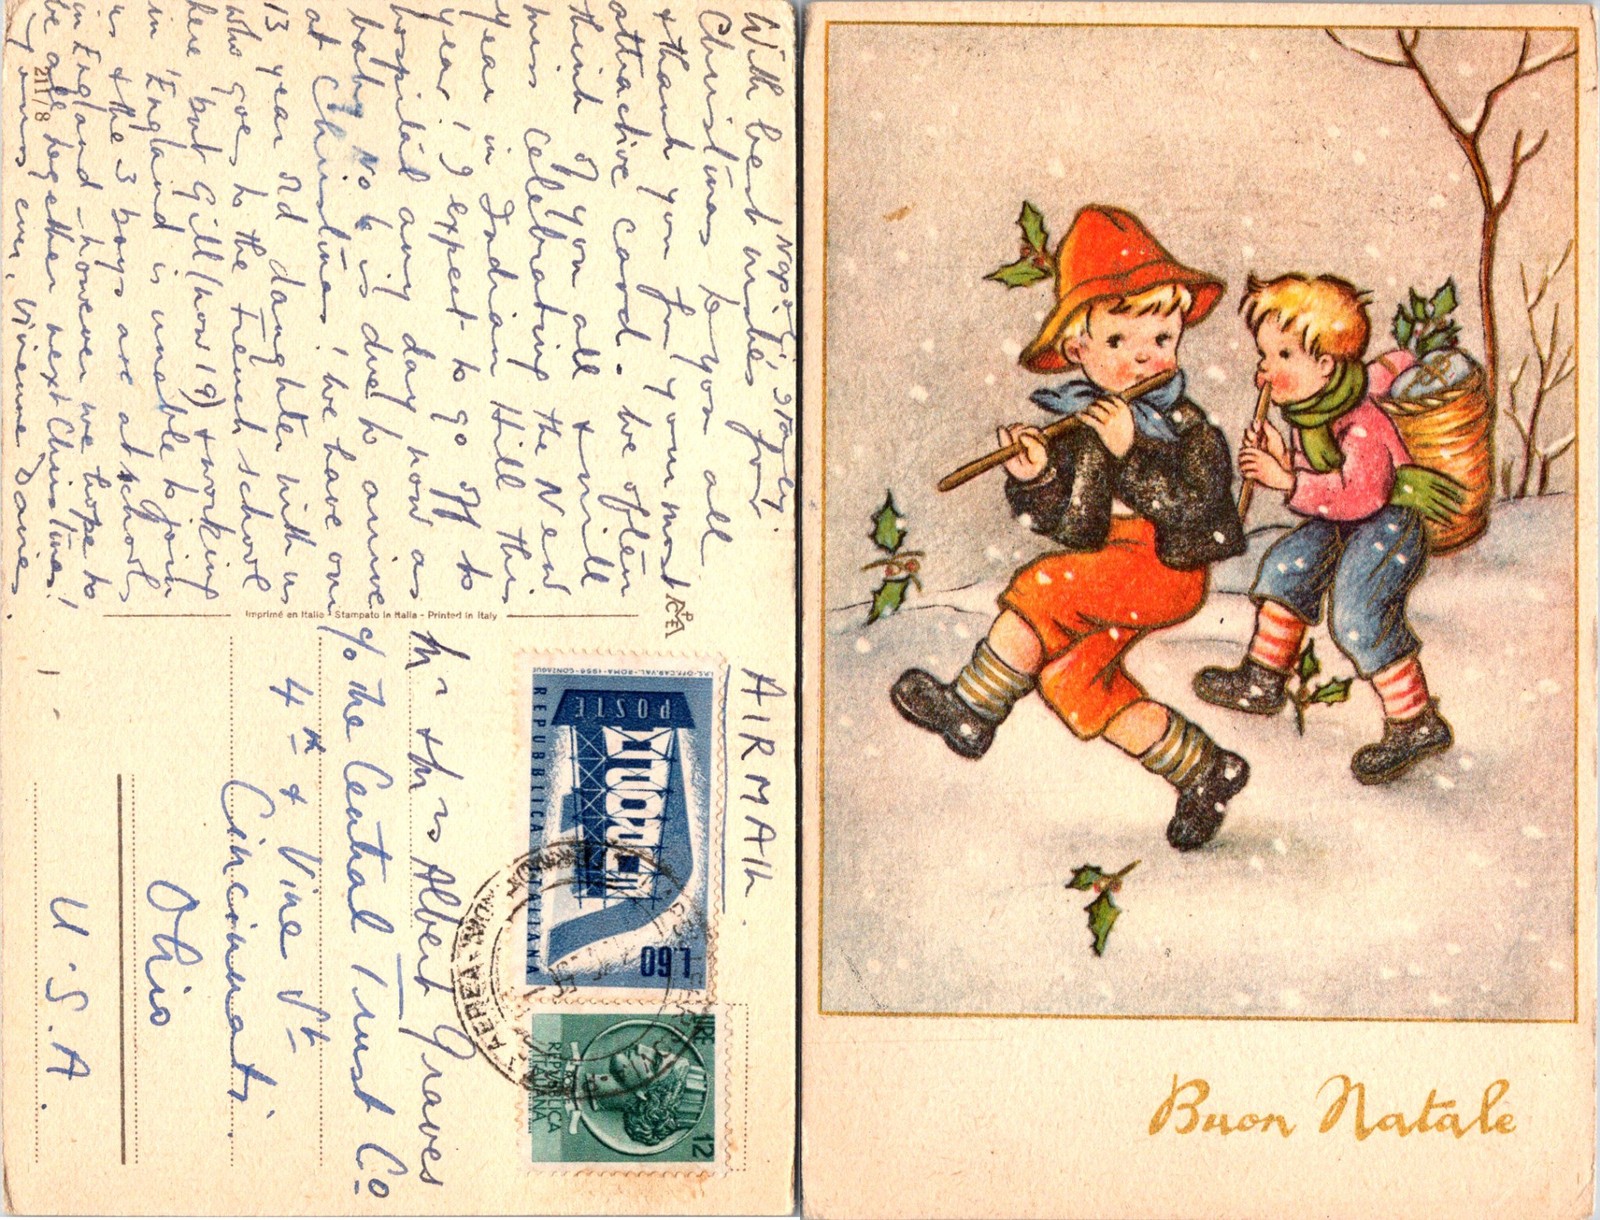 Napoli, Italy.
With best wishes for
Christmas to you all
& thank you for your most
attractive card. We often
think of you all & will
miss celebrating the New
year in Indian Hill this
year! I expect to go off to
hospital any day now as
baby No 6 is due to arrive
at Christmas! We have our
13 year old daughter with us
who goes to the French school
here but Gill (now 19) & working
in England is unable to join
us & the 3 boys are at school
in England – however we hope to
be all together next Christmas!
Yours ever, Vivienne Davies.
211/8
Imprimé en Italie - Stampato in Italia - Printed in Italy
AIRMAIL.
Mr & Mrs Albert Graves
c/o The Central Trust Co
4th & Vine St
Cincinnati.
Ohio
U.S.A.
I.P.S.-OFF.CAR.VAL.-ROMA-1956-GONZAGUE
POSTE
REPUBBLICA ITALIANA
EUROPA
L.60
LIRE
REPVBBLICA
ITALIANA
12
Buon Natale